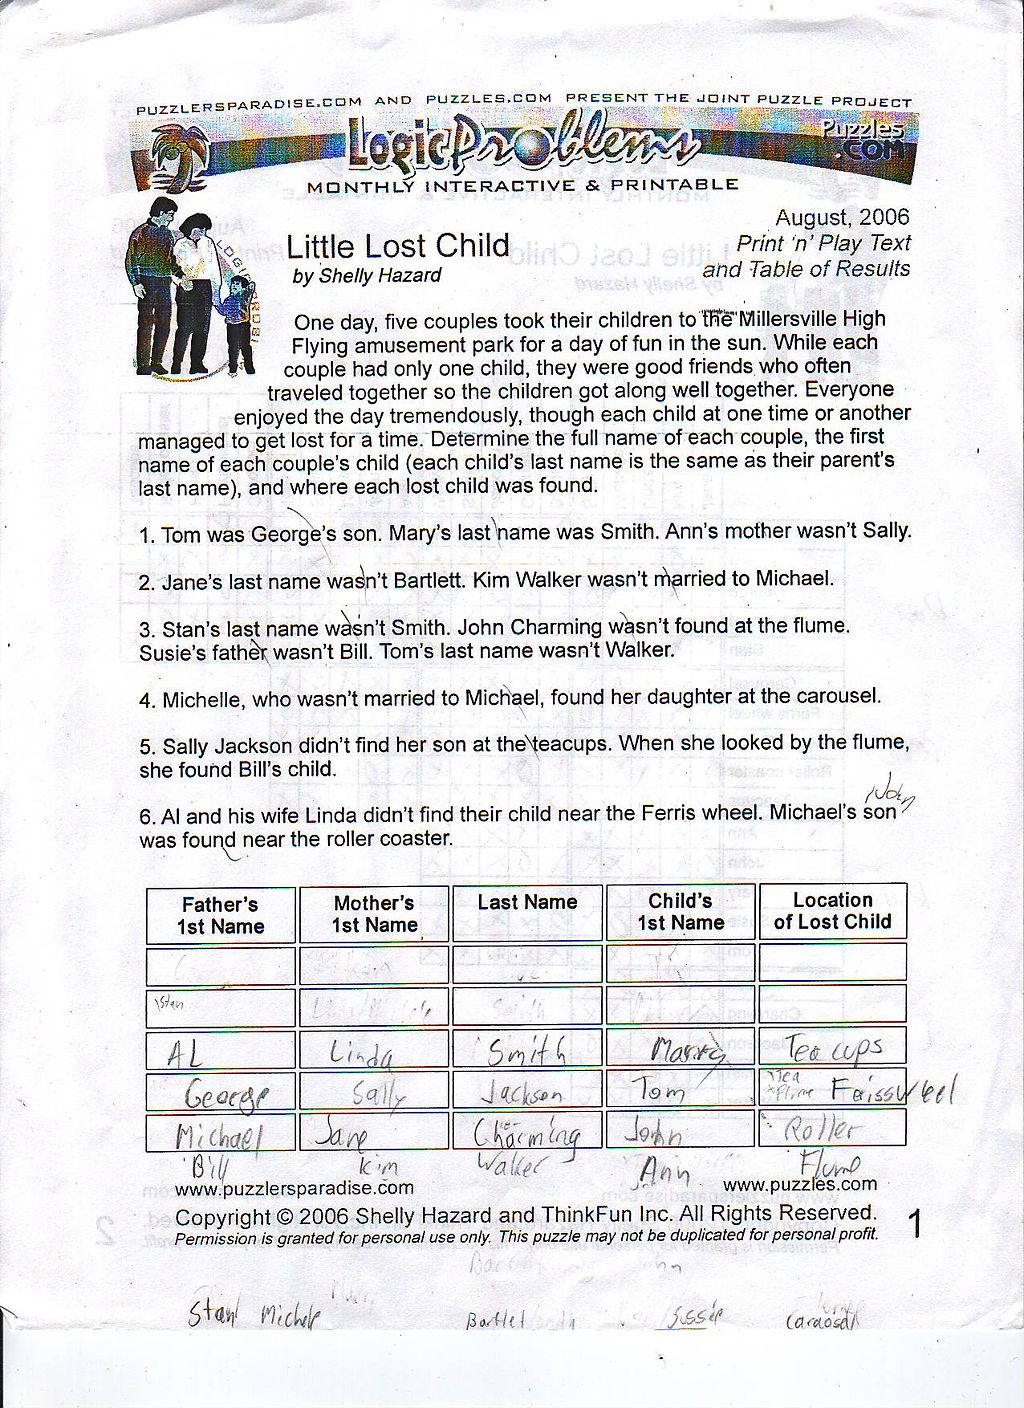 PUZZLERSPARADISE.COM AND PUZZLES.COM PRESENT THE JOINT PUZZLE PROJECT
LogicProblems
Puzzles
.COM
MONTHLY INTERACTIVE & PRINTABLE
August, 2006
Little Lost Child
Print 'n' Play Text
by Shelly Hazard
and Table of Results
One day, five couples took their children to the Millersville High
Flying amusement park for a day of fun in the sun. While each
couple had only one child, they were good friends who often
traveled together so the children got along well together. Everyone
enjoyed the day tremendously, though each child at one time or another
managed to get lost for a time. Determine the full name of each couple, the first
name of each couple's child (each child's last name is the same as their parent's
last name), and where each lost child was found.
1. Tom was George's son. Mary's last name was Smith. Ann's mother wasn't Sally.
2. Jane's last name wasn't Bartlett. Kim Walker wasn't married to Michael.
3. Stan's last name wasn't Smith. John Charming wasn't found at the flume.
Susie's father wasn't Bill. Tom's last name wasn't Walker.
4. Michelle, who wasn't married to Michael, found her daughter at the carousel.
5. Sally Jackson didn't find her son at the teacups. When she looked by the flume,
she found Bill's child.
John
6. Al and his wife Linda didn't find their child near the Ferris wheel. Michael's son
was found near the roller coaster.
Father's Mother's Last Name Child's Location
1st Name 1st Name 1st Name of Lost Child
Stan Smith
AL Linda Smith Tea cups
George Sally Jackson Tom Tea Flume
Michael Jane Charming John Roller
Bill Kim Walker Ann Flume
www.puzzlersparadise.com www.puzzles.com
Copyright © 2006 Shelly Hazard and ThinkFun Inc. All Rights Reserved. 1
Permission is granted for personal use only. This puzzle may not be duplicated for personal profit.
Stan Bartlet